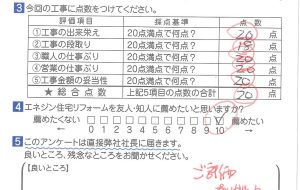 3 今回の工事に点数をつけてください。
評価項目 採点基準 点数
①工事の出来栄え 20点満点で何点? 20 点
②工事の段取り 20点満点で何点? 18 点
③職人の仕事ぶり 20点満点で何点? 20 点
④営業の仕事ぶり 20点満点で何点? 20 点
⑤工事金額の妥当性 20点満点で何点? 20 点
★総合点数 上記5項目の点数の合計 点
4 エネジン住宅リフォームを友人・知人に薦めたいと思いますか?
薦めたくない □ □ □ □ □ □ □ □ □ □ □ 薦めたい
0 1 2 3 4 5 6 7 8 9 10
5 このアンケートは直接弊社社長に届きます。
良いところ、残念なところをお聞かせください。
【良いところ】